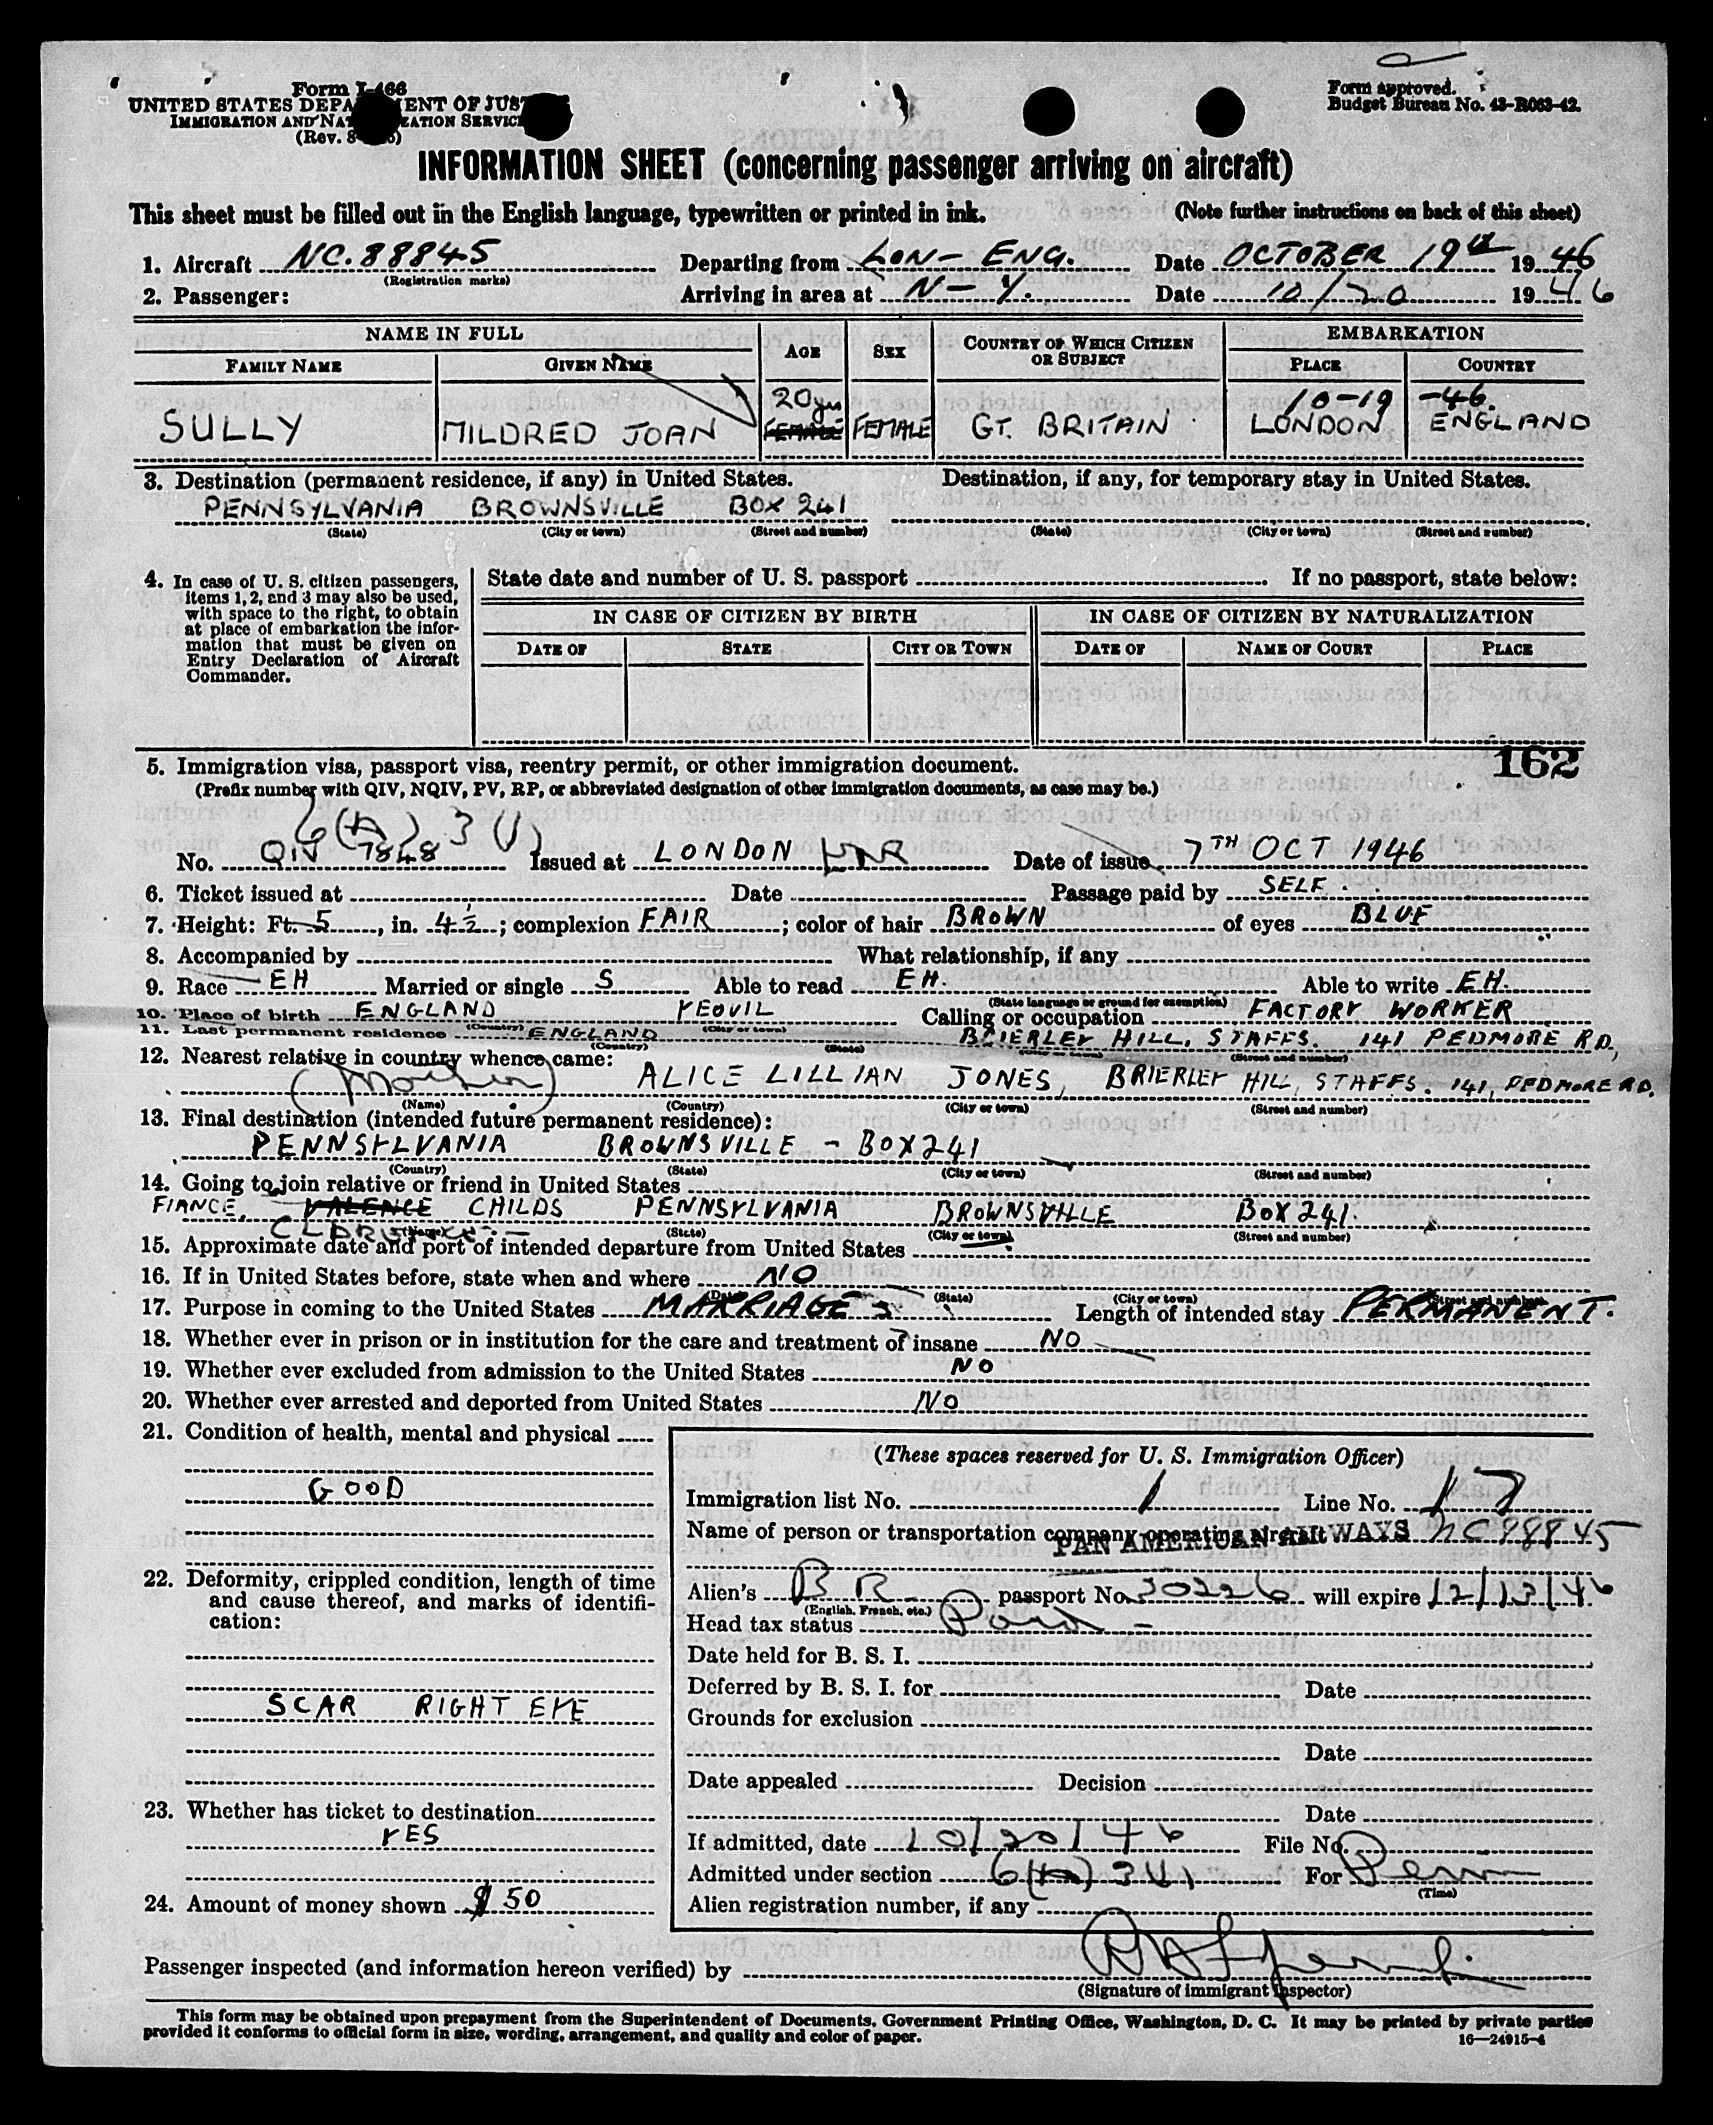 Form I-466
UNITED STATES DEPARTMENT OF JUSTICE
IMMIGRATION AND NATURALIZATION SERVICE
(Rev. 8
Form approved.
Budget Bureau No. 43-R063-42.
INFORMATION SHEET (concerning passenger arriving on aircraft)
This sheet must be filled out in the English language, typewritten or printed in ink. (Note further instructions on back of this sheet)
1. Aircraft NC.88845 Departing from LON- ENG. Date OCTOBER 19th 1946
(Registration marks)
2. Passenger: Arriving in area at N-Y. Date 10/20 1946
NAME IN FULL AGE SEX COUNTRY OF WHICH CITIZEN OR SUBJECT EMBARKATION
FAMILY NAME GIVEN NAME PLACE COUNTRY
20 yrs 10-19 -46.
SULLY MILDRED JOAN FEMALE FEMALE GT. BRITAIN LONDON ENGLAND
3. Destination (permanent residence, if any) in United States. Destination, if any, for temporary stay in United States.
PENNSYLVANIA BROWNSVILLE BOX 241
(State) (City or town) (Street and number) (State) (City or town) (Street and number)
4. In case of U. S. citizen passengers, items 1, 2, and 3 may also be used, with space to the right, to obtain at place of embarkation the information that must be given on Entry Declaration of Aircraft Commander.
State date and number of U. S. passport If no passport, state below:
IN CASE OF CITIZEN BY BIRTH IN CASE OF CITIZEN BY NATURALIZATION
DATE OF STATE CITY OR TOWN DATE OF NAME OF COURT PLACE
162
5. Immigration visa, passport visa, reentry permit, or other immigration document.
(Prefix number with QIV, NQIV, PV, RP, or abbreviated designation of other immigration documents, as case may be.)
6(A) 3(1)
No. QIV 7848 Issued at LONDON Date of issue 7TH OCT 1946
6. Ticket issued at Date Passage paid by SELF.
7. Height: Ft. 5, in. 4½; complexion FAIR; color of hair BROWN of eyes BLUE
8. Accompanied by What relationship, if any
9. Race EH Married or single S Able to read EH. Able to write EH.
(State language or ground for exemption)
10. Place of birth ENGLAND YEOVIL Calling or occupation FACTORY WORKER
(Country) (City or town)
11. Last permanent residence ENGLAND BRIERLEY HILL, STAFFS. 141 PEDMORE RD,
(Country) (State) (City or town) (Street and number)
12. Nearest relative in country whence came:
(Mother) ALICE LILLIAN JONES, BRIERLEY HILL, STAFFS. 141, PEDMORE RD.
(Name) (Country) (City or town) (Street and number)
13. Final destination (intended future permanent residence):
PENNSYLVANIA BROWNSVILLE - BOX 241
(Country) (State) (City or town) (Street and number)
14. Going to join relative or friend in United States
FIANCE, VALENCE CHILDS PENNSYLVANIA BROWNSVILLE BOX 241.
(State) (City or town) (Street and number)
15. Approximate date and port of intended departure from United States
16. If in United States before, state when and where NO
(Date) (State) (City or town) (Street and number)
17. Purpose in coming to the United States MARRIAGE Length of intended stay PERMANENT.
18. Whether ever in prison or in institution for the care and treatment of insane NO
19. Whether ever excluded from admission to the United States NO
20. Whether ever arrested and deported from United States NO
21. Condition of health, mental and physical
GOOD
22. Deformity, crippled condition, length of time and cause thereof, and marks of identification:
SCAR RIGHT EYE
23. Whether has ticket to destination
YES
24. Amount of money shown $ 50
(These spaces reserved for U. S. Immigration Officer)
Immigration list No. 1 Line No. 17
Name of person or transportation company operating aircraft PAN AMERICAN AIRWAYS NC88845
Alien's BR passport No. 30226 will expire 12/13/46
(English, French, etc.)
Head tax status Paid -
Date held for B. S. I.
Deferred by B. S. I. for Date
Grounds for exclusion
Date
Date appealed Decision
Date
If admitted, date 10/20/46 File No.
Admitted under section 6(A) 3(1) For Perm
(Time)
Alien registration number, if any
Passenger inspected (and information hereon verified) by
(Signature of immigrant inspector)
This form may be obtained upon prepayment from the Superintendent of Documents, Government Printing Office, Washington, D. C. It may be printed by private parties
provided it conforms to official form in size, wording, arrangement, and quality and color of paper. 16—24915-4